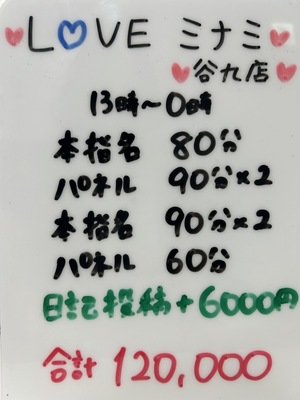 LOVE ミナミ
谷九店
13時～0時
本指名 80分
パネル 90分×2
本指名 90分×2
パネル 60分
日記投稿+6000円
合計 120,000